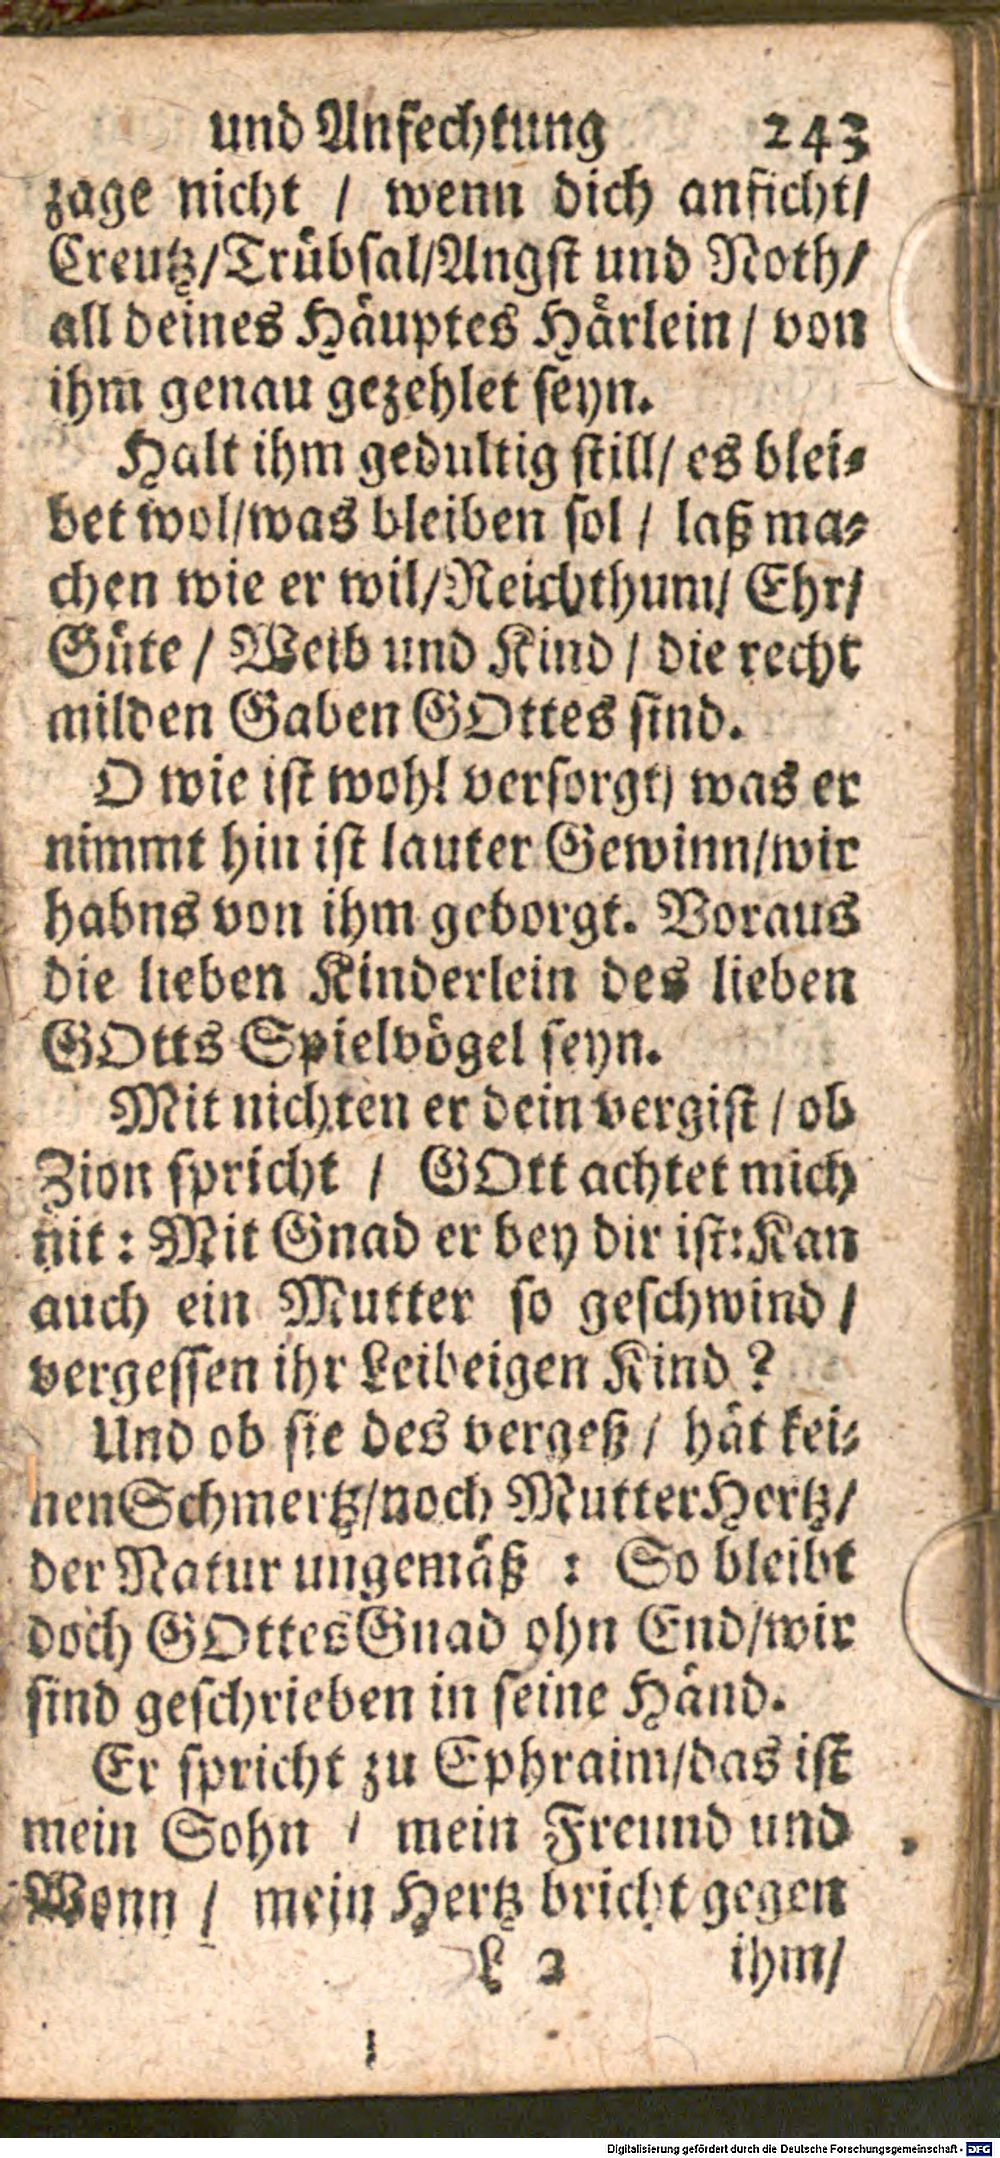 und Anfechtung 243
zage nicht / wenn dich anficht/
Creutz/Trübsal/Angst und Noth/
all deines Häuptes Härlein / von
ihm genau gezehlet seyn.
Halt ihm gedultig still/ es blei-
bet wol/was bleiben sol / laß ma-
chen wie er wil/Reichthum/ Ehr/
Güte / Weib und Kind / die recht
milden Gaben GOttes sind.
O wie ist wohl versorgt/ was er
nimmt hin ist lauter Gewinn/wir
habns von ihm geborgt. Voraus
die lieben Kinderlein des lieben
GOtts Spielvögel seyn.
Mit nichten er dein vergist / ob
Zion spricht / GOtt achtet mich
nit: Mit Gnad er bey dir ist: Kan
auch ein Mutter so geschwind /
vergessen ihr Leibeigen Kind ?
Und ob sie des vergeß / hät kei-
nen Schmertz/noch Mutter Hertz/
der Natur ungemäß : So bleibt
doch GOttes Gnad ohn End/wir
sind geschrieben in seine Händ.
Er spricht zu Ephraim/das ist
mein Sohn / mein Freund und
Wonn / mein Hertz bricht gegen
L 2 ihm/
Digitalisierung gefördert durch die Deutsche Forschungsgemeinschaft - DFG